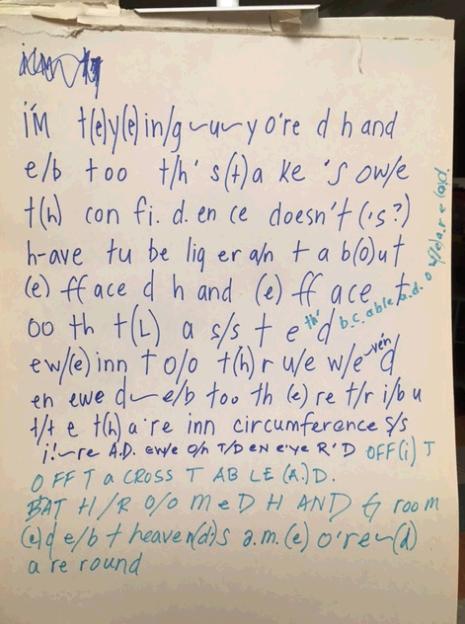 i'm t(e)y(e)in/g~u~yo're d hand
e/b too t/h' s(t)a ke 's ow/e
t(h) con fi. d. en ce doesn't ('s?)
h-ave tu be liq er a/n t a b(o)u t
(e) ff ace d h and (e) ff ace t
oo th t(L) a s/s t e th' d b.c. able a.d. o
ew/(e) inn t o/o t(h) r u/e w/e vén d
en ewe d~e/b too th (e) re t/r i/b u
t/t e t(h) a're inn circumference s/s
i!~re A.D. ew/e o/n T/D eN e'ye R'D OFF(i) T
O FF T a CROSS T AB LE (A.)D.
BAT H/R O/O M e D H AND G room
(e)d e/b t heaven(d)s a.m. (e) o're~(d)
a re round